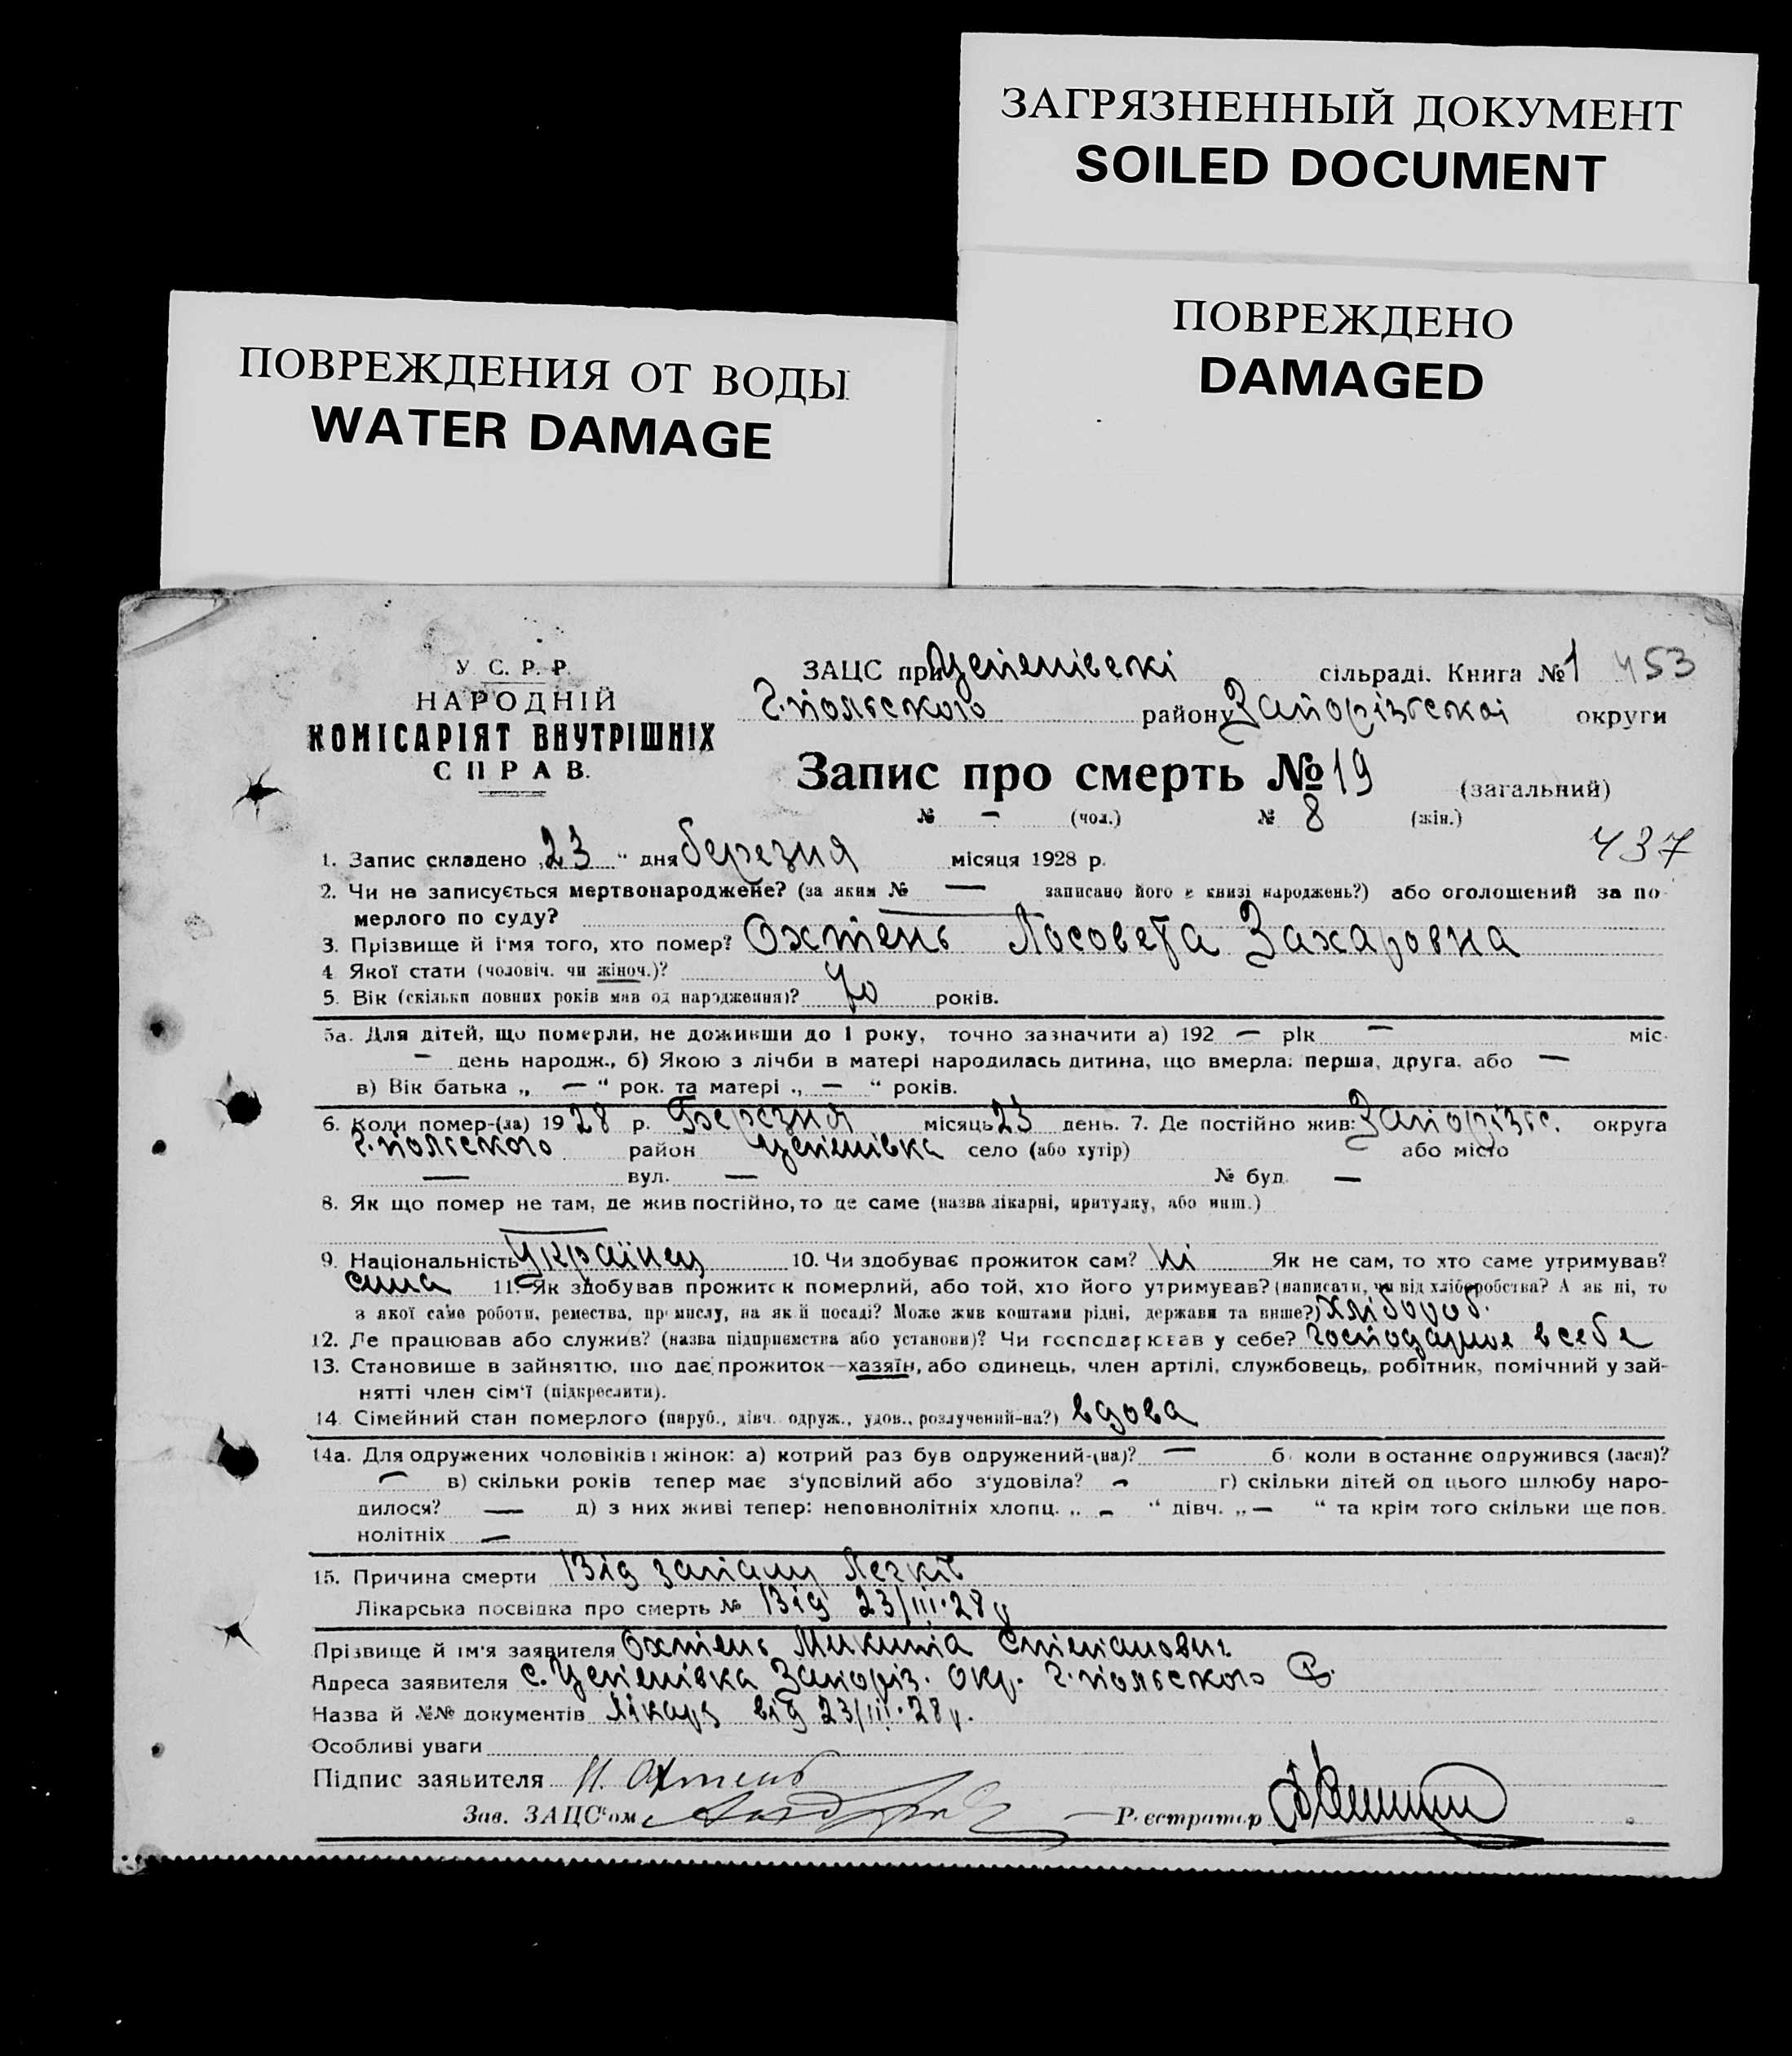 ЗАГРЯЗНЕННЫЙ ДОКУМЕНТ
SOILED DOCUMENT
ПОВРЕЖДЕНО
DAMAGED
ПОВРЕЖДЕНИЯ ОТ ВОДЫ
WATER DAMAGE
У. С. Р. Р.
НАРОДНІЙ
КОМІСАРІЯТ ВНУТРІШНІХ
СПРАВ.
ЗАЦС при Цепенівскі сільраді. Книга № 1 453
Г.польского району Запорізської округи
Запис про смерть № 19 (загальний)
№ — (чол.) № 8 (жін.)
437
1. Запис складено „23“ дня березня місяця 1928 р.
2. Чи не записується мертвонароджене? (за яким № — записано його в книзі народжень?) або оголошений за по-
мерлого по суду?
3. Прізвище й і'мя того, хто помер? Охтень Лосовета Захаровна
4. Якої стати (чоловіч. чи жіноч.)?
5. Вік (скільки повних років мав од народження)? 70 років.
5а. Для дітей, що померли, не доживши до 1 року, точно зазначити а) 192 — рік — міс.
— день народж., б) Якою з лічби в матері народилась дитина, що вмерла: перша, друга, або —
в) Вік батька „ — “ рок. та матері „ — “ років.
6. Коли помер-(ла) 1928 р. Березня місяць 23 день. 7. Де постійно жив: Запорізьс. округа
Г.польского район Цепенівка село (або хутір) або місто
— вул. — № буд. —
8. Як що помер не там, де жив постійно, то де саме (назва лікарні, притулку, або инш.)
9. Національність Українец 10. Чи здобуває прожиток сам? Ні Як не сам, то хто саме утримував?
сина 11. Як здобував прожиток померлий, або той, хто його утримував? (написати, чи від хліборобства? А як ні, то
з якої саме роботи, ремества, промислу, на якій посаді? Може жив коштами рідні, держави та инше?) Хлібороб.
12. Де працював або служив? (назва підприємства або установи)? Чи господарював у себе? Господарюе в себе
13. Становище в зайняттю, що дає прожиток—хазяїн, або одинець, член артілі, службовець, робітник, помічний у зай-
нятті член сім'ї (підкреслити).
14. Сімейний стан померлого (паруб., дівч. одруж., удов., розлучений-на?) вдова
14а. Для одружених чоловіків і жінок: а) котрий раз був одружений-(на)? — б) коли в останнє одружився (лася)?
— в) скільки років тепер має з'удовілий або з'удовіла? — г) скільки дітей од цього шлюбу наро-
дилося? — д) з них живі тепер: неповнолітніх хлопц. „ — “ дівч. „ — “ та крім того скільки ще пов.
нолітніх —
15. Причина смерти Від запалу Легків
Лікарська посвідка про смерть № Від 23/III.28 р
Прізвище й ім'я заявителя Охтень Микита Степанович
Адреса заявителя с. Цепенівка Запоріз. окр. Г.польского Р.
Назва й №№ документів Лікарь від 23/III.28 р.
Особливі уваги
Підпис заявителя Н. Охтень
Зав. ЗАЦС'ом
Реєстратор